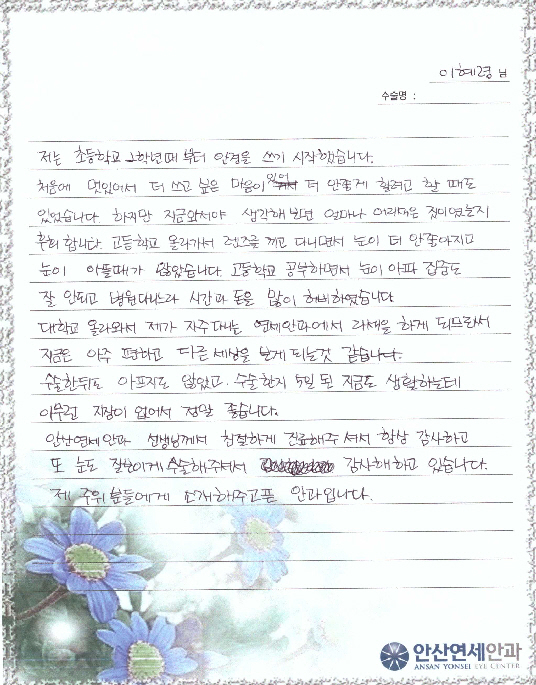 이혜령 님
수술명 :
저는 초등학교 2학년때 부터 안경을 쓰기 시작했습니다.
처음에 멋있어서 더 쓰고 싶은 마음이 있어 더 안좋게 할려고 할 때도
있었습니다. 하지만 지금와서야 생각해 보면 얼마나 어리석은 짓이였는지
후회 합니다. 고등학교 올라가서 렌즈를 끼고 다니면서 눈이 더 안좋아지고
눈이 아플때가 많았습니다. 고등학교 공부하면서 눈이 아파 집중도
잘 안되고 병원다니느라 시간과 돈을 많이 허비하였습니다
대학교 올라와서 제가 자주다니는 연세안과에서 라섹을 하게 되므로써
지금은 아주 편하고 다른 세상을 보게 되는것 같습니다.
수술한뒤도 아프지도 않았고. 수술한지 5일 된 지금도 생활하는데
아무런 지장이 없어서 정말 좋습니다.
안산연세안과 선생님께서 친절하게 진료해주셔서 항상 감사하고
또 눈도 잘보이게 수술해주셔서 감사해하고 있습니다.
제 주위분들에게 소개해주고픈 안과입니다.
안산연세안과
ANSAN YONSEI EYE CENTER